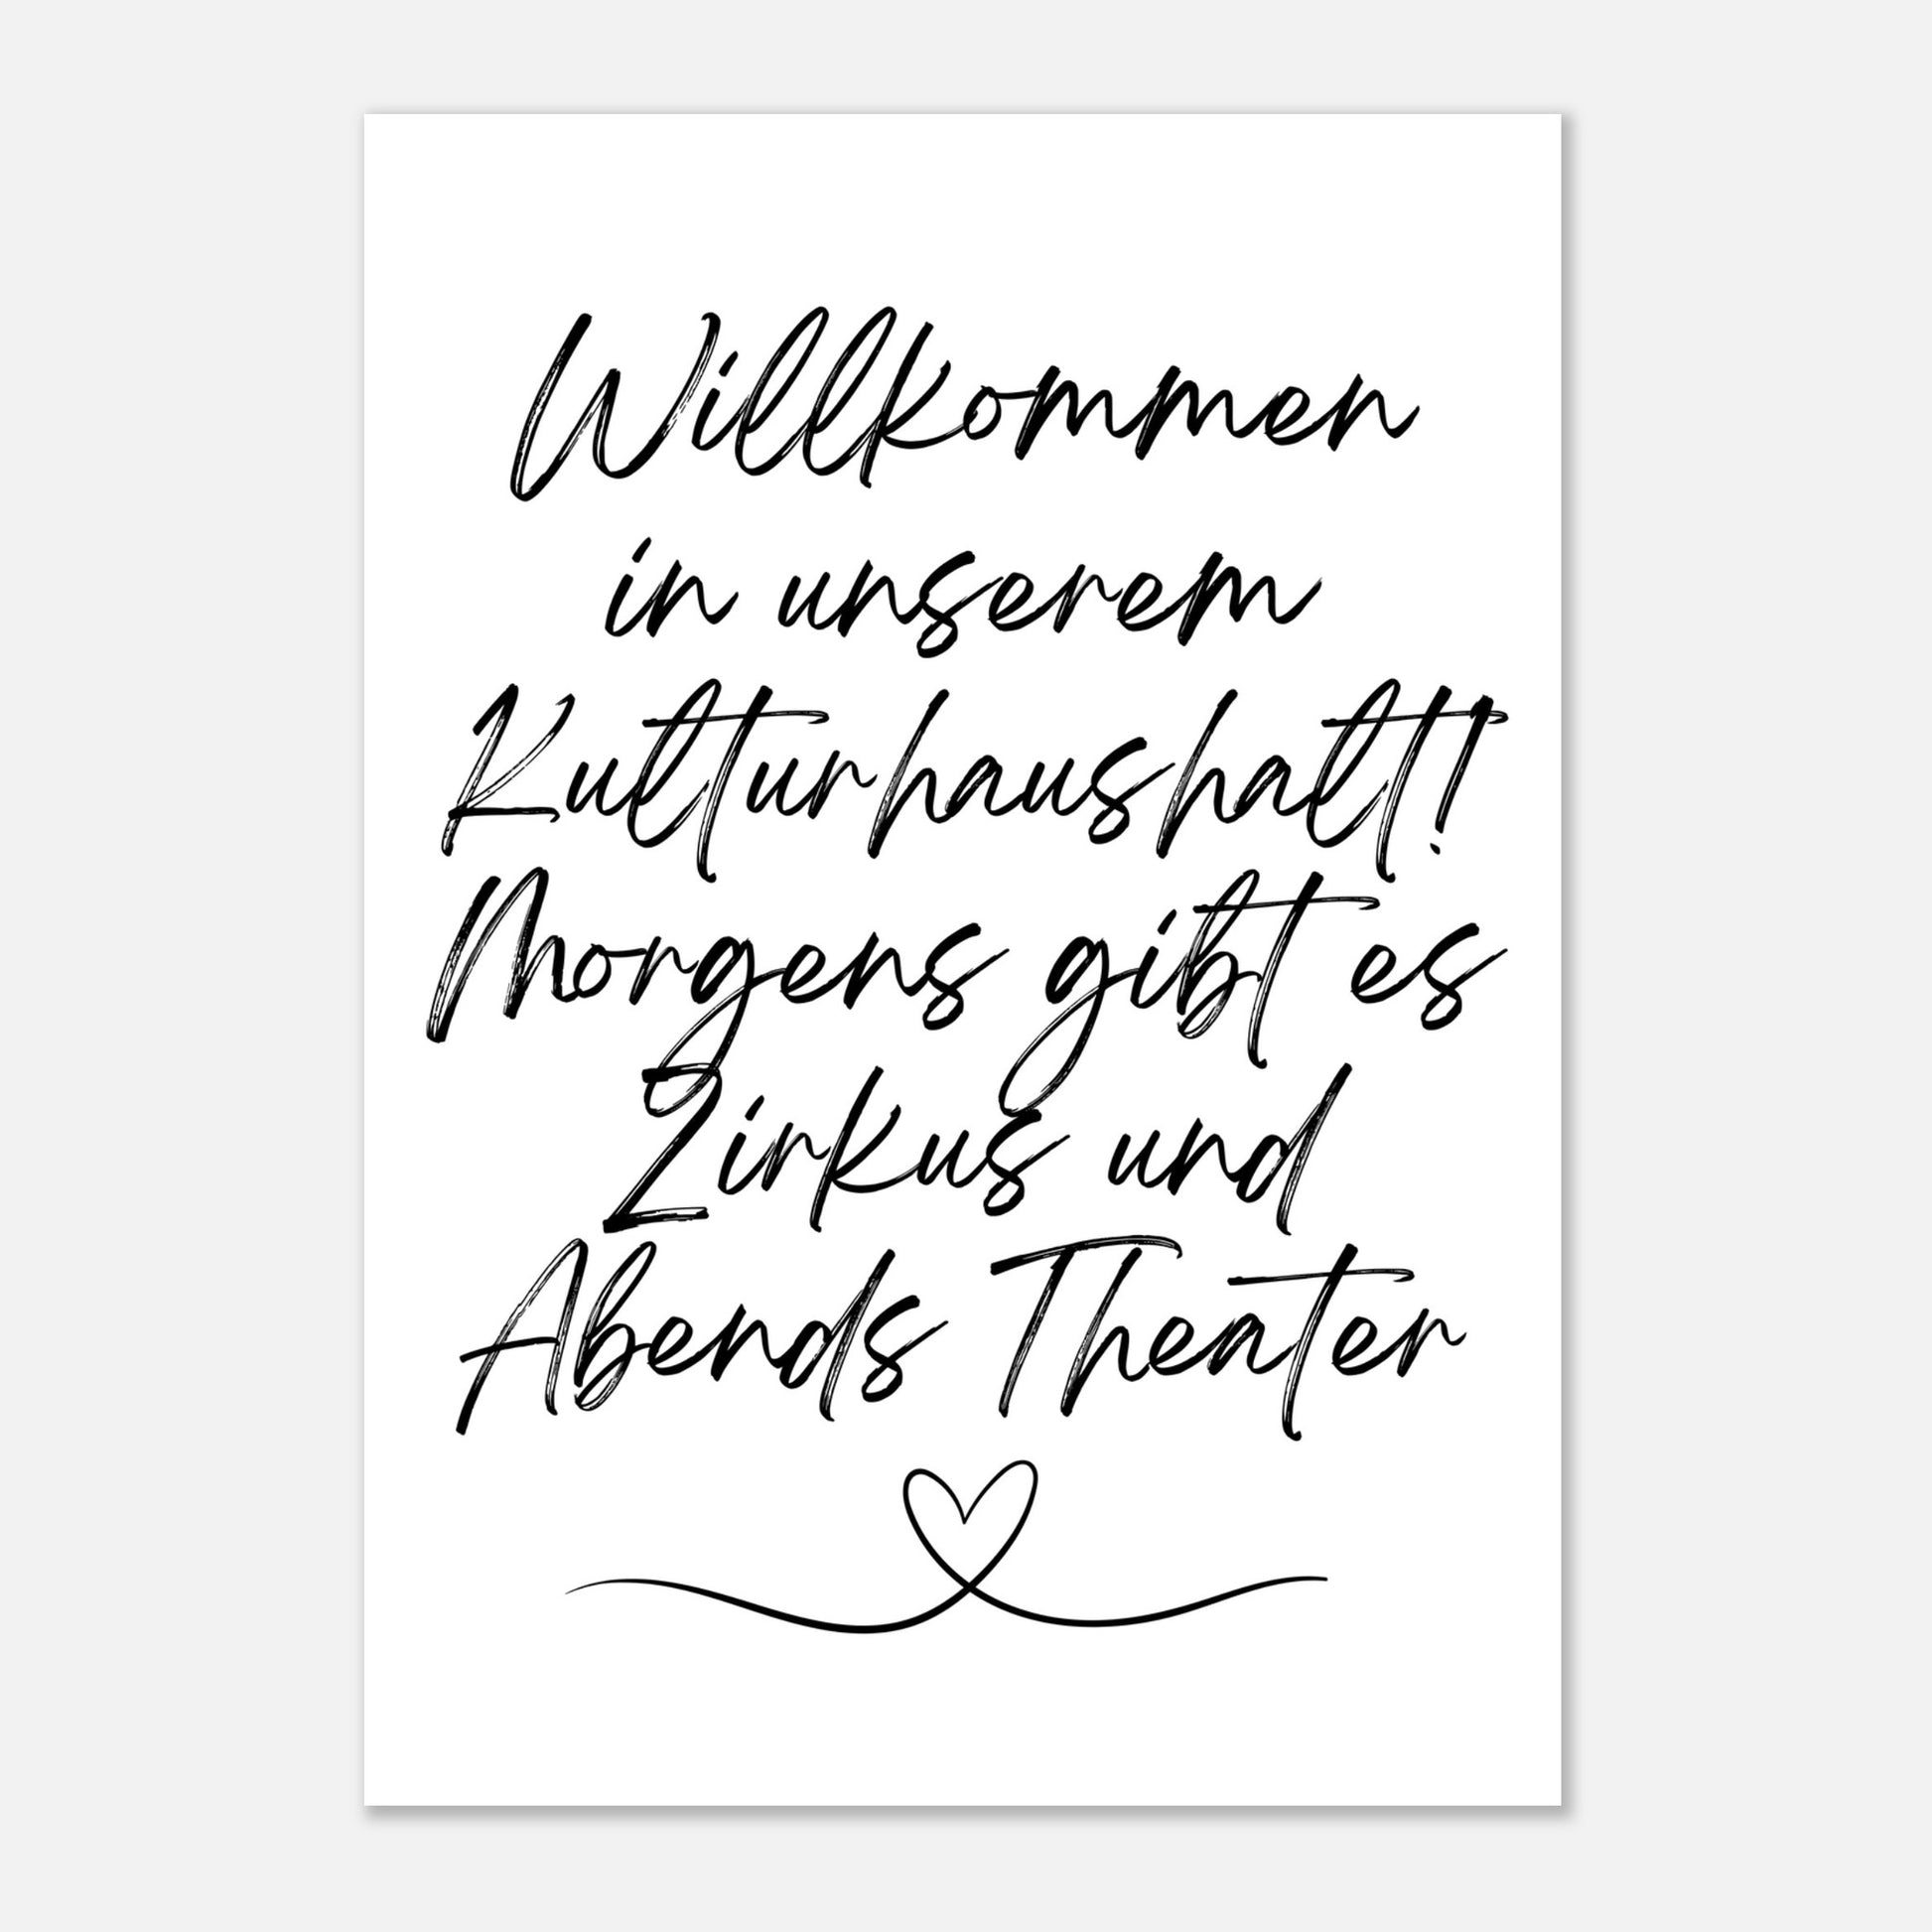 Willkommen
in unserem
Kulturhaushalt!
Morgens gibt es
Zirkus und
Abends Theater